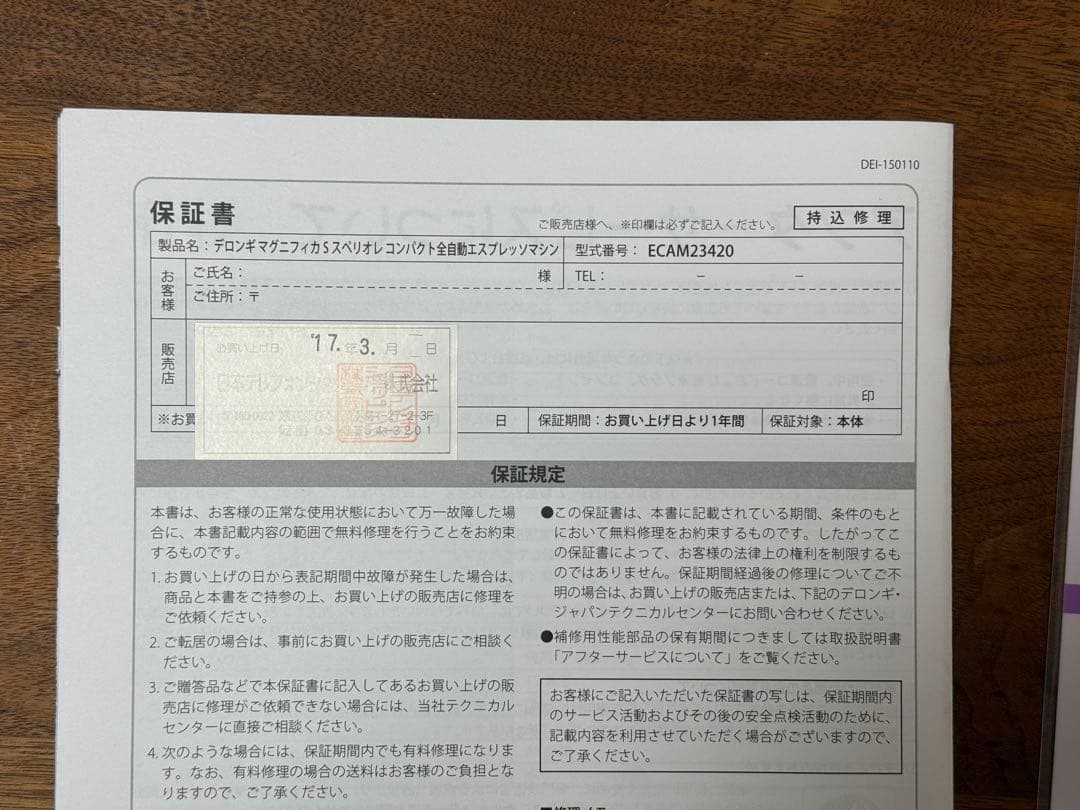 DEI-150110
保証書
ご販売店様へ、※印欄は必ずご記入ください。
持込修理
製品名：デロンギ マグニフィカ S スペリオレ コンパクト全自動エスプレッソマシン
型式番号： ECAM23420
お客様
ご氏名：
様
TEL： － －
ご住所：〒
販売店
お買い上げ日 '17.年3.月 日
株式会社
印
※お買
日
保証期間：お買い上げ日より1年間
保証対象：本体
保証規定
本書は、お客様の正常な使用状態において万一故障した場
合に、本書記載内容の範囲で無料修理を行うことをお約束
するものです。
1. お買い上げの日から表記期間中故障が発生した場合は、
商品と本書をご持参の上、お買い上げの販売店に修理を
ご依頼ください。
2. ご転居の場合は、事前にお買い上げの販売店にご相談く
ださい。
3. ご贈答品などで本保証書に記入してあるお買い上げの販
売店に修理がご依頼できない場合には、当社テクニカル
センターに直接ご相談ください。
4. 次のような場合には、保証期間内でも有料修理になりま
す。なお、有料修理の場合の送料はお客様のご負担とな
りますので、ご了承ください。
●この保証書は、本書に記載されている期間、条件のもと
において無料修理をお約束するものです。したがってこ
の保証書によって、お客様の法律上の権利を制限するも
のではありません。保証期間経過後の修理についてご不
明の場合は、お買い上げの販売店または、下記のデロンギ・
ジャパンテクニカルセンターにお問い合わせください。
●補修用性能部品の保有期間につきましては取扱説明書
「アフターサービスについて」をご覧ください。
お客様にご記入いただいた保証書の写しは、保証期間内
のサービス活動およびその後の安全点検活動のために、
記載内容を利用させていただく場合がございますので、
ご了承ください。
■修理メモ